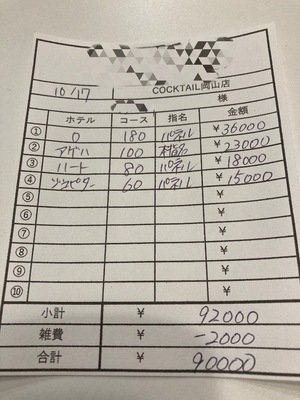 COCKTAIL岡山店
10/17 様
ホテル コース 指名 金額
① O 180 パネル ¥36000
② アゲハ 100 本指名 ¥23000
③ ハート 80 パネル ¥18000
④ 60 パネル ¥15000
⑤ ¥
⑥ ¥
⑦ ¥
⑧ ¥
⑨ ¥
⑩ ¥
小計 ¥ 92000
雑費 ¥ -2000
合計 ¥ 90000